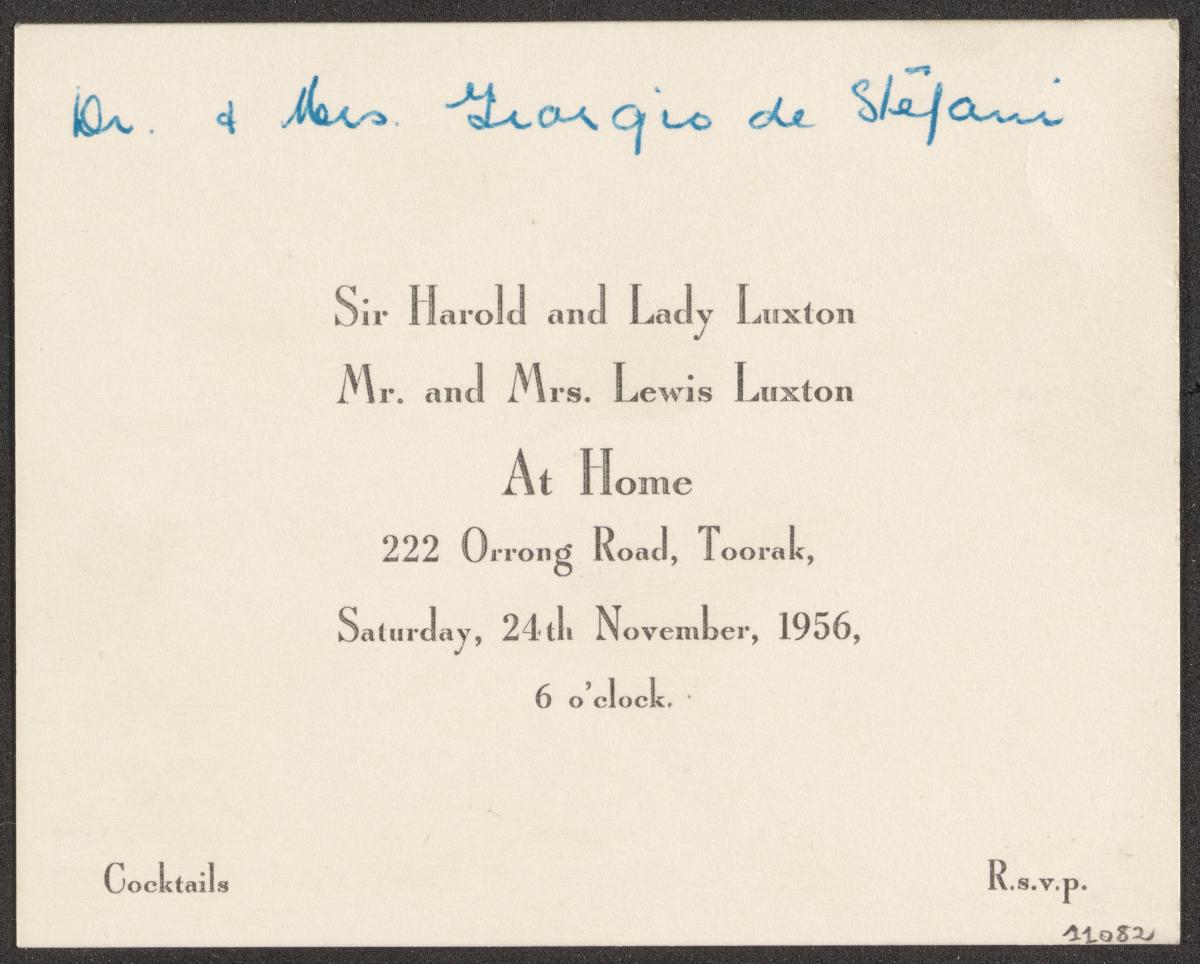 Dr. & Mrs. Giorgio de Stéfani
Sir Harold and Lady Luxton
Mr. and Mrs. Lewis Luxton
At Home
222 Orrong Road, Toorak,
Saturday, 24th November, 1956,
6 o'clock.
Cocktails
R.s.v.p.
11082